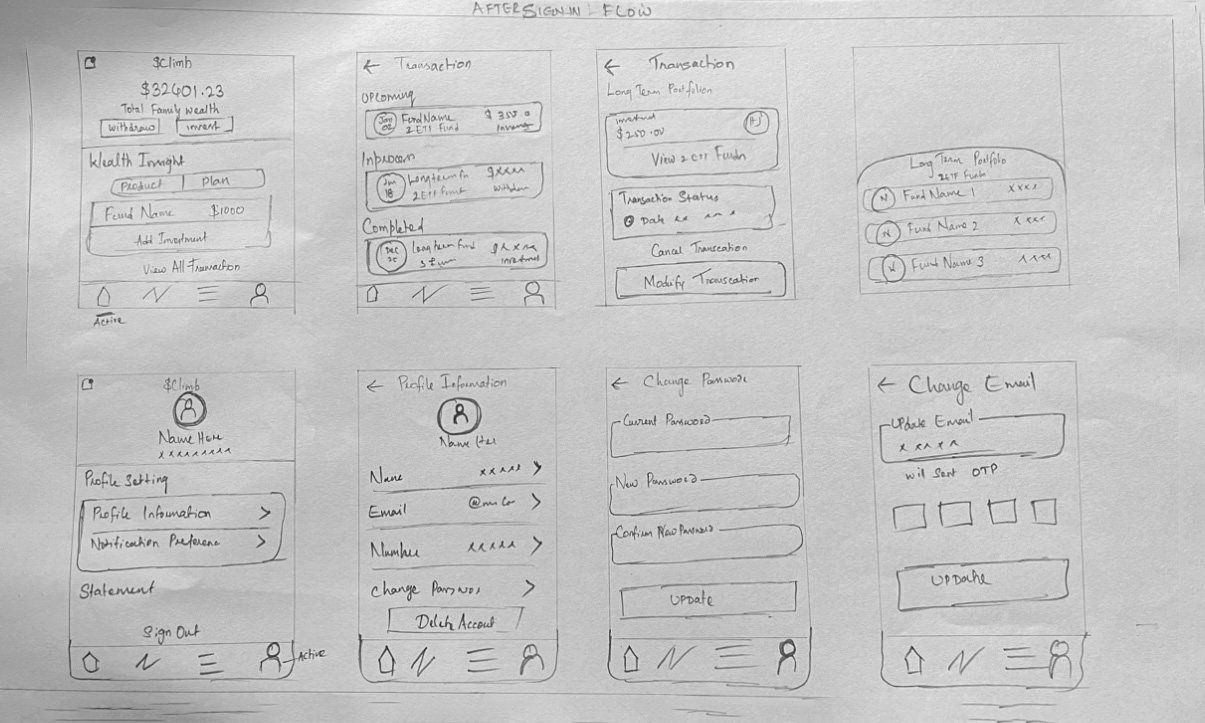 AFTER SIGN-IN FLOW
$Climb
$32401.23
Total Family wealth
withdraw invest
Wealth Insight
Product Plan
Fund Name $1000
Add Investment
View All Transaction
Active
← Transaction
Upcoming
Jan 02 Fund Name $ 350.0
2 ETF Fund
Inprocess
Jan 18 Longterm Fn xxxx
2 ETF Fund Withdraw
Completed
Dec 25 long term fund
← Transaction
Long Term Portfolio
$250.00
View 2 ETF Funds
Transaction Status
Date xx xx x
Cancel Transcation
Modify Transcation
Long Term Portfolio
2 ETF Funds
N Fund Name 1 xxxx
N Fund Name 2 x xxx
N Fund Name 3 xxxx
$Climb
Name Here
xxxxxxxxx
Profile Setting
Profile Information >
Notification Preference >
Statement
Sign Out
Active
← Profile Information
Name xxxxx >
Email >
Number xxxxx >
Change Password >
Delete Account
← Change Password
Current Password
New Password
Confirm New Password
UPDate
← Change Email
UPdate Email
xxxxx
will Sent OTP
UPDate